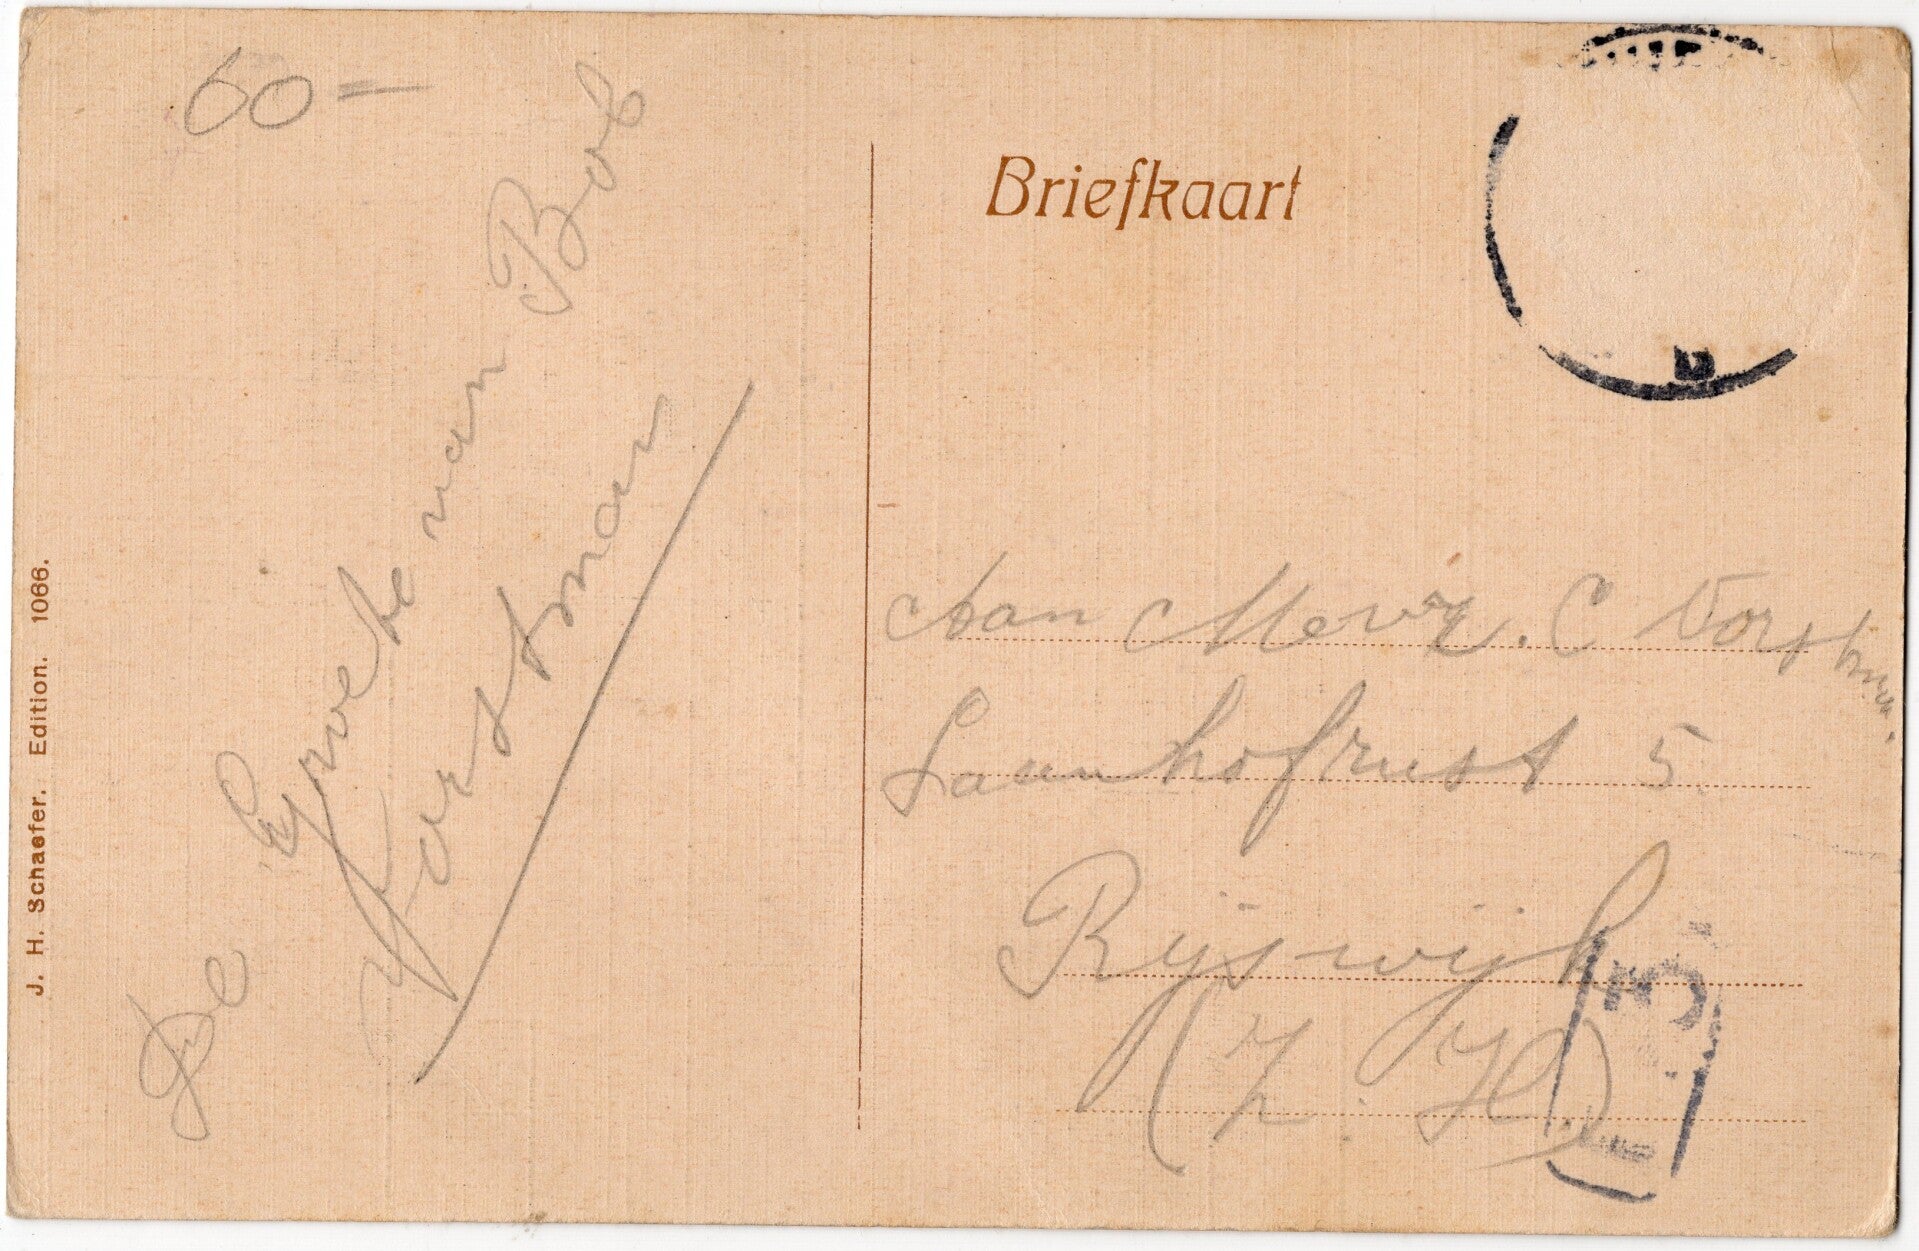 60=
De Groete van Bob
Vorstman
J. H. Schaefer. Edition. 1066.
Briefkaart
Aan Mevr. C Vorstman.
Laanhofrust 5
Rijswijk
(Z. H.)